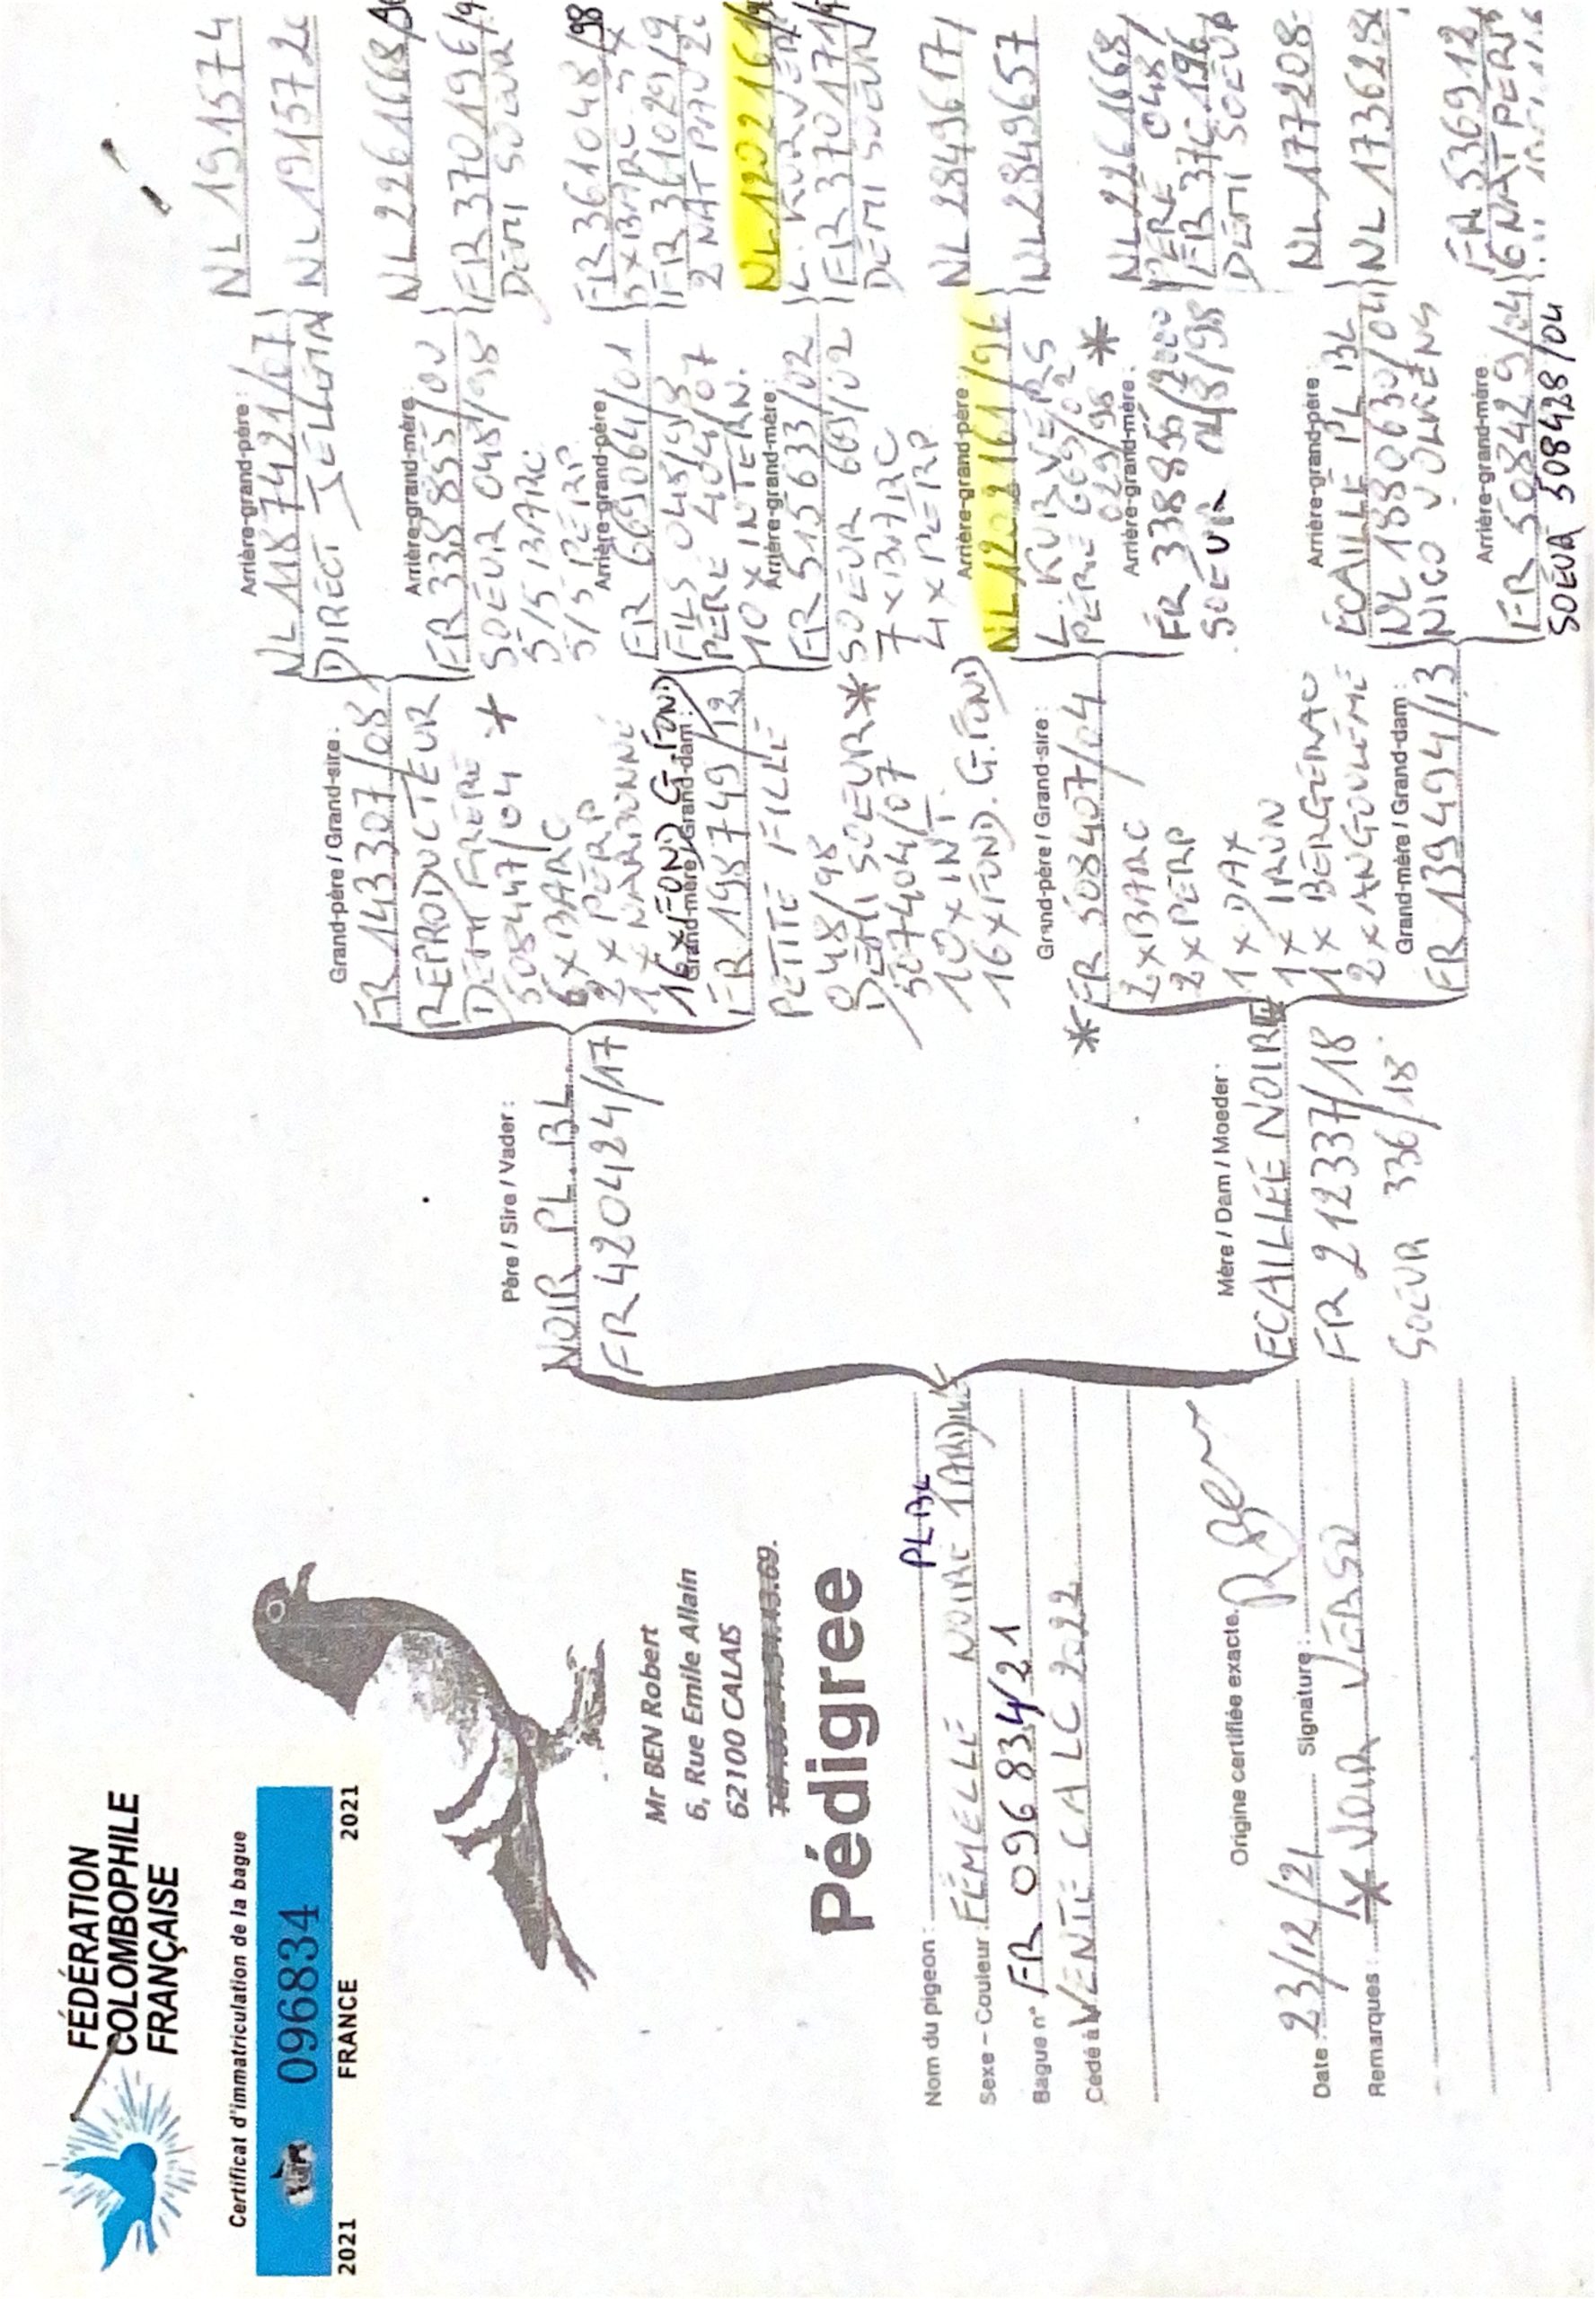 FÉDÉRATION
COLOMBOPHILE
FRANÇAISE
Certificat d'immatriculation de la bague
096834
2021 FRANCE 2021
Mr BEN Robert
6, Rue Emile Allain
62100 CALAIS
Pédigree
Nom du pigeon : PLBL
Sexe - Couleur FEMELLE NOIRE TARDIVE
Bague n° FR 096834/21
Cédé à VENTE CALC 2022
Origine certifiée exacte.
Date : 23/12/21 Signature :
Remarques : * VOIR VERSO
Père / Sire / Vader :
NOIR PL.BL
FR 420424/17
Mère / Dam / Moeder :
ECAILLÉE NOIRE
FR 212337/18
SOEUR 336/18
Grand-père / Grand-sire :
FR 143307/08
REPRODUCTEUR
DEMI FRERE *
508447/04
6 x BARC
2 x PERP
1 x NARBONNE
16 x FOND G.FOND
Grand-mère / Grand-dam :
FR 198749/12
PETITE FILLE
048/98
DEMI SOEUR *
507404/07
10 x INT.
16 x FOND. G.FOND
Grand-père / Grand-sire :
* FR 508407/04
2 x BARC
2 x PERP
1 x DAX
1 x IRUN
1 x BERGERAC
2 x ANGOULEME
Grand-mère / Grand-dam :
FR 139494/13
Arrière-grand-père :
NL 1187421/07
DIRECT JELLEMA
Arrière-grand-mère
FR 338855/00
SOEUR 048/98
5/5 BARC
5/5 PERP
Arrière-grand-père
FR 669064/01
FILS 048/98
PERE 404/07
10 x INTERN.
Arrière-grand-mère :
FR 515633/02
SOEUR 669/02
7 x BARC
4 x PERP
Arrière-grand-père :
NL 1202161/96
L. KURVERS
PERE 669/02
029/98 *
Arrière-grand-mère :
FR 338856/2000
SOEUR 048/98
Arrière-grand-père :
ECAILLE PL BL
NL 1880630/04
NICO VOLKENS
Arrière-grand-mère :
FR 508429/04
SOEUR 508428/04
NL 191574
NL 191572
NL 2261668
FR 370196
DEMI SOEUR
FR 361048/98
5 x BARC
FR 361029/9
2 NAT PAU
NL 1202161
L. KURVERS
FR 370171
DEMI SOEUR
NL 2849617
NL 2849657
NL 2261668
PERE 048
DEMI SOEUR
NL 177208
NL 173628
FR 536912
6 NAT PERP